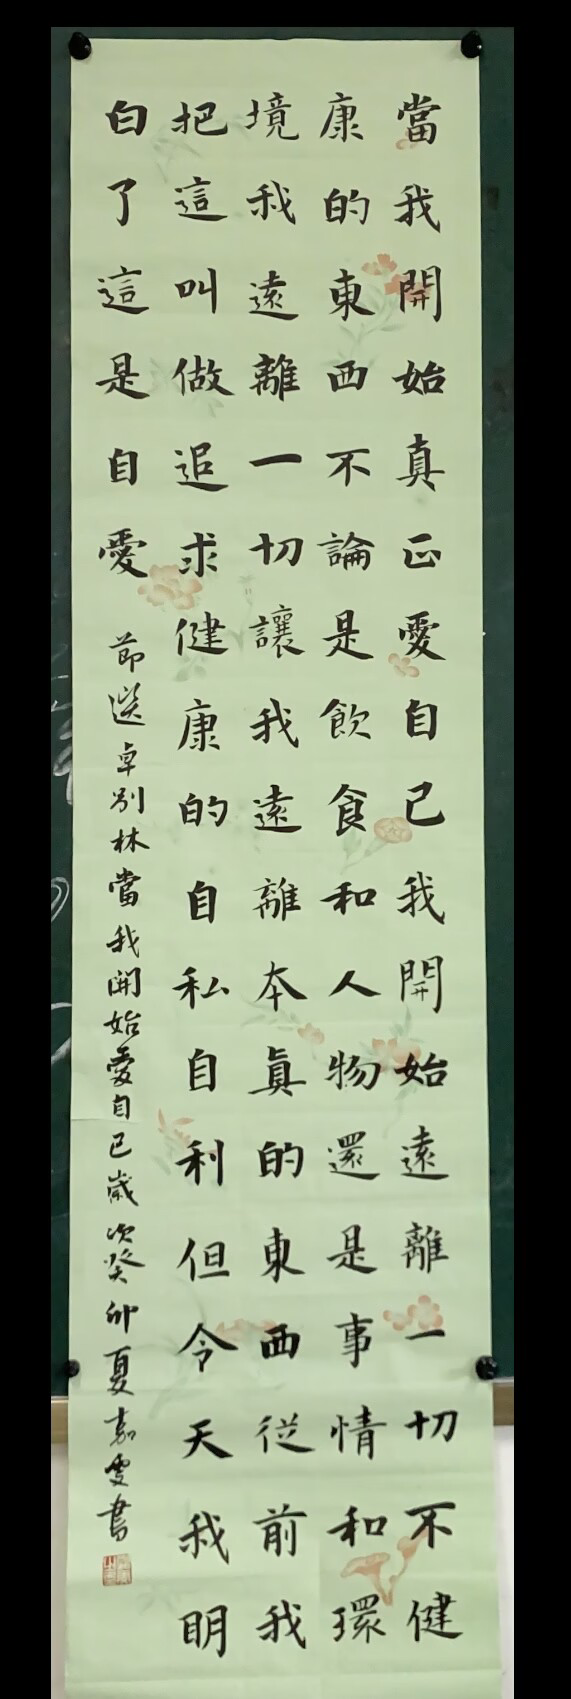 當我開始真正愛自己我開始遠離一切不健
康的東西不論是飲食和人物還是事情和環
境我遠離一切讓我遠離本真的東西從前我
把這叫做追求健康的自私自利但今天我明
白了這是自愛
節選卓别林當我開始愛自己歲次癸卯夏嘉雯書